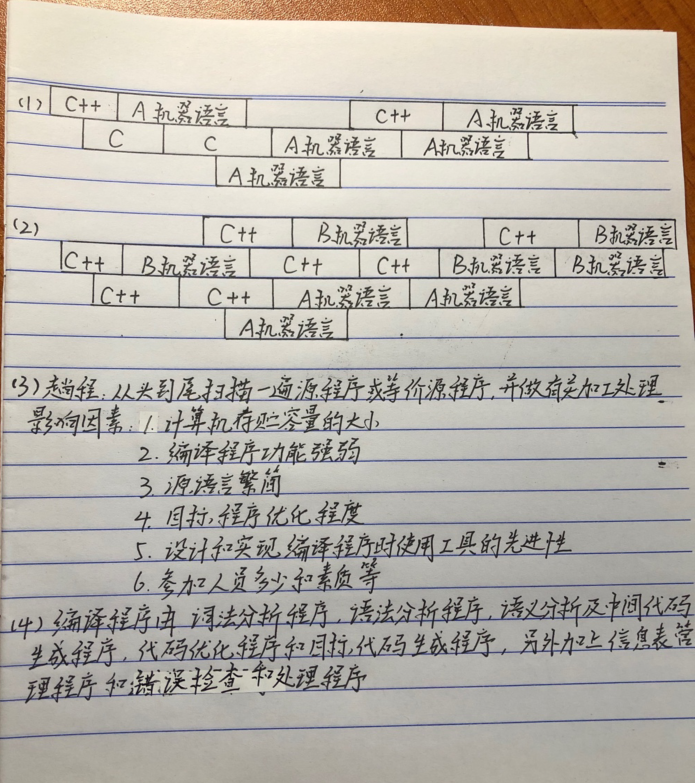 (1) C++ A机器语言 C++ A机器语言
C C A机器语言 A机器语言
A机器语言
(2) C++ B机器语言 C++ B机器语言
C++ B机器语言 C++ C++ B机器语言 B机器语言
C++ C++ A机器语言 A机器语言
A机器语言
(3)趟程:从头到尾扫描一遍源程序或等价源程序,并做有关加工处理
影响因素:1.计算机存贮容量的大小
2.编译程序功能强弱
3.源语言繁简
4.目标程序优化程度
5.设计和实现编译程序时使用工具的先进性
6.参加人员多少和素质等
(4)编译程序由 词法分析程序,语法分析程序,语义分析及中间代码
生成程序,代码优化程序和目标代码生成程序,另外加上信息表管
理程序和错误检查和处理程序